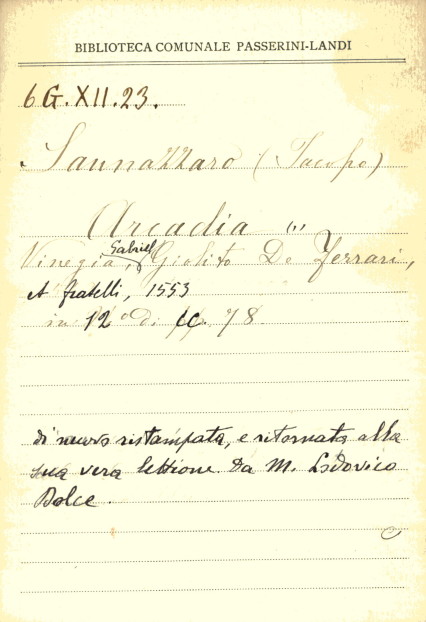 BIBLIOTECA COMUNALE PASSERINI-LANDI
6 G.XII.23.
Sannazzaro (Jacopo)
Arcadia (1)
Vinegia, Gabriel Giolito De Ferrari,
et fratelli, 1553
in 12° di cc. 78.
di nuovo ristampata, e ritornata alla
sua vera lettione da M. Lodovico
Dolce.